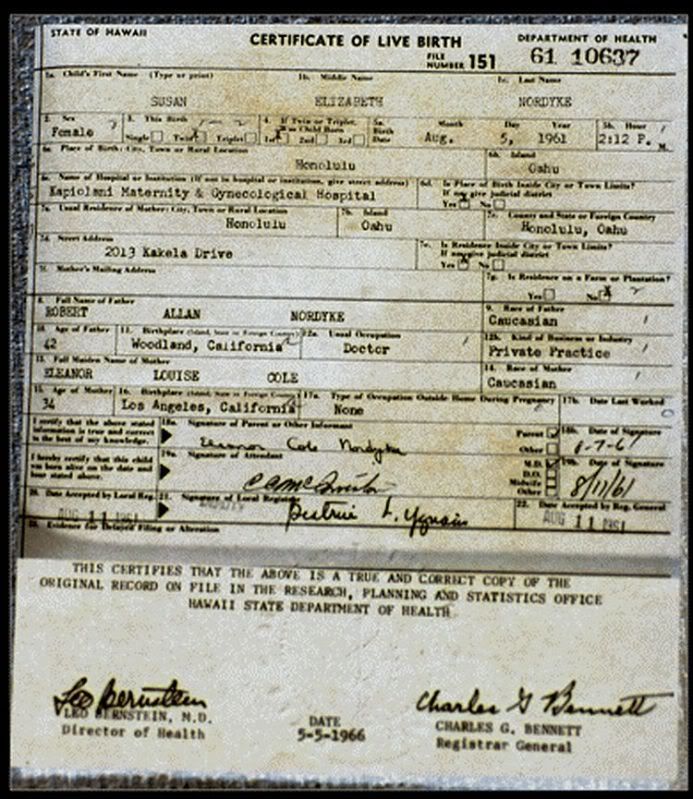 STATE OF HAWAII
CERTIFICATE OF LIVE BIRTH
DEPARTMENT OF HEALTH
FILE NUMBER 151
61 10637
1a. Child's First Name (Type or print) 1b. Middle Name 1c. Last Name
SUSAN ELIZABETH NORDYKE
2. Sex 3. This Birth 4. If Twin or Triplet, Was Child Born 5a. Birth Date Month Day Year 5b. Hour
Female Single Twin Triplet 1st 2nd 3rd Aug. 5, 1961 2:12 P. M.
6a. Place of Birth: City, Town or Rural Location 6b. Island
Honolulu Oahu
6c. Name of Hospital or Institution (If not in hospital or institution, give street address) 6d. Is Place of Birth Inside City or Town Limits? If no give judicial district
Kapiolani Maternity & Gynecological Hospital Yes No
7a. Usual Residence of Mother: City, Town or Rural Location 7b. Island 7c. County and State or Foreign Country
Honolulu Oahu Honolulu, Oahu
7d. Street Address 7e. Is Residence Inside City or Town Limits? If no give judicial district
2013 Kakela Drive Yes No
7f. Mother's Mailing Address 7g. Is Residence on a Farm or Plantation?
Yes No
8. Full Name of Father 9. Race of Father
ROBERT ALLAN NORDYKE Caucasian
10. Age of Father 11. Birthplace (Island, State or Foreign Country) 12a. Usual Occupation 12b. Kind of Business or Industry
42 Woodland, California Doctor Private Practice
13. Full Maiden Name of Mother 14. Race of Mother
ELEANOR LOUISE COLE Caucasian
15. Age of Mother 16. Birthplace (Island, State or Foreign Country) 17a. Type of Occupation Outside Home During Pregnancy 17b. Date Last Worked
34 Los Angeles, California None
I certify that the above stated information is true and correct to the best of my knowledge. 18a. Signature of Parent or Other Informant Parent Other 18b. Date of Signature
Eleanor Cole Nordyke
I hereby certify that this child was born alive on the date and hour stated above. 19a. Signature of Attendant M.D. D.O. Midwife Other 19b. Date of Signature
8/11/61
20. Date Accepted by Local Reg. 21. Signature of Local Registrar 22. Date Accepted by Reg. General
AUG 11 1961 AUG 11 1961
23. Evidence for Delayed Filing or Alteration
THIS CERTIFIES THAT THE ABOVE IS A TRUE AND CORRECT COPY OF THE
ORIGINAL RECORD ON FILE IN THE RESEARCH, PLANNING AND STATISTICS OFFICE
HAWAII STATE DEPARTMENT OF HEALTH
Leo Bernstein Charles G Bennett
LEO BERNSTEIN, M.D. DATE CHARLES G. BENNETT
Director of Health 5-5-1966 Registrar General